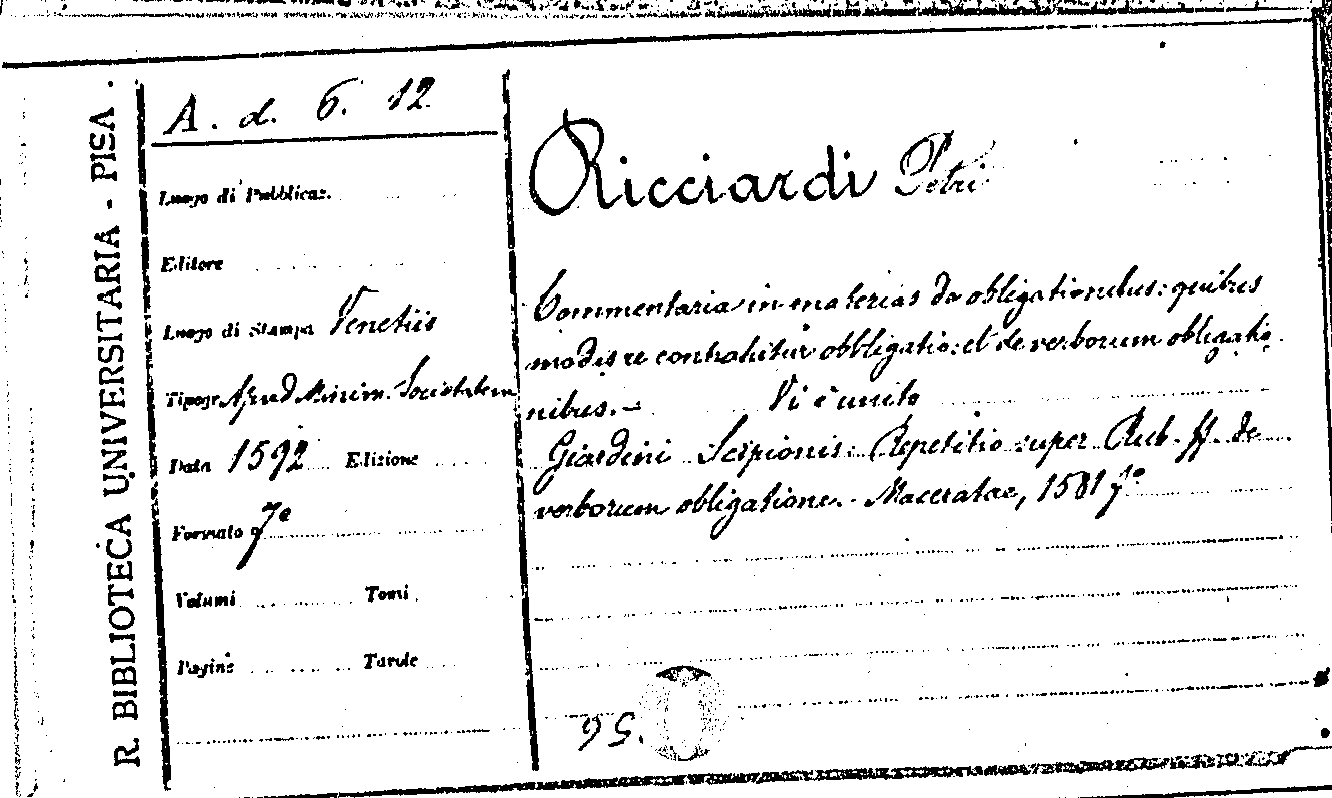 R. BIBLIOTECA UNIVERSITARIA - PISA.
A. d. 6. 12
Luogo di Pubblicaz.
Editore
Luogo di Stampa Venetiis
Tipogr. Apud Minim. Societatem
Data 1592 Edizione
Formato fº
Volumi Tomi
Pagine Tavole
Ricciardi Petri
Commentaria in materias de obligationibus: quibus
modis re contrahitur obbligatio: et de verborum obligatio
nibus. — Vi è unito
Giardini Scipionis: Repetitio super Rub. ff. de
verborum obligatione. - Maceratae, 1581 fº
95.